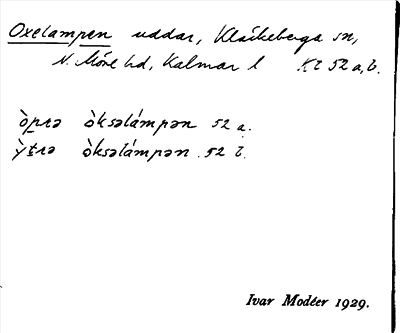 Oxelampen uddar, Kläckeberga sn,
N. Möre hd, Kalmar l Kl 52 a, b.
òpɹə òksəlámpən 52 a.
ỳtɹə òksəlámpən 52 b.
Ivar Modéer 1929.